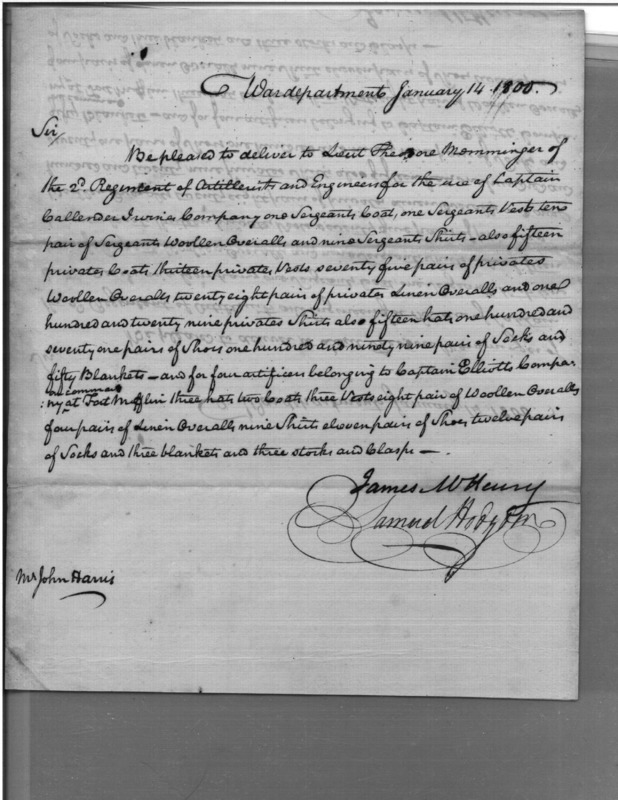 War department January 14 1800.
Sir
Be pleased to deliver to Lieut Theodore Memminger of
the 2d. Regiment of Artillerists and Engineers for the use of Captain
Callender Irvines Company one Sergeants Coat, one Sergeants Vest ten
pair of Sergeants Woollen Overalls and nine Sergeants Shirts – also fifteen
privates Coats thirteen privates Vests seventy five pairs of privates
Woollen Overalls twenty eight pairs of privates Linen Overalls and one
hundred and twenty nine privates Shirts also fifteen hats one hundred and
seventy one pairs of Shoes one hundred and ninety nine pairs of Socks and
fifty Blankets – and for four artificers belonging to Captain Elliotts Compa-
on command
:ny at Fort Mifflin three hats two Coats three Vests eight pair of Woollen Overalls
four pairs of Linen Overalls nine Shirts eleven pairs of Shoes twelve pairs
of Socks and three blankets and three stocks and Clasps —
James McHenry
Samuel Hodgdon
Mr John Harris